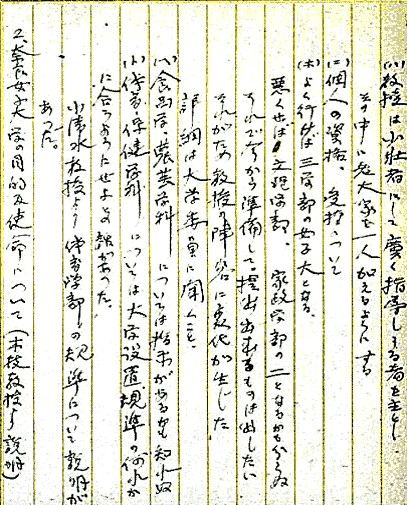 (ハ)教授は少壮者にして良く指導しうる者を主とし、
その中に老大家を一人加えるようにする
(ニ)個人の資格、定数について
(ホ)よく行けば三学部の女子大となる。
悪く行けば文理学部、家政学部の二となるかもしらぬ
それで今から準備して提出出来るものは出したい
それがため教授の陣容に変化が生じた
部綱は大学委員に聞くこと、
(ヘ)食品学、農芸学科 については指示があるかも知れぬ
(ト)体育、保健学科 については大学設置規準の何れか
に合うようにせよとの話があった。
小清水教授より体育学部の規準について説明が
あった。
2、奈良女子大学の目的及使命について(本枝教授より説明)